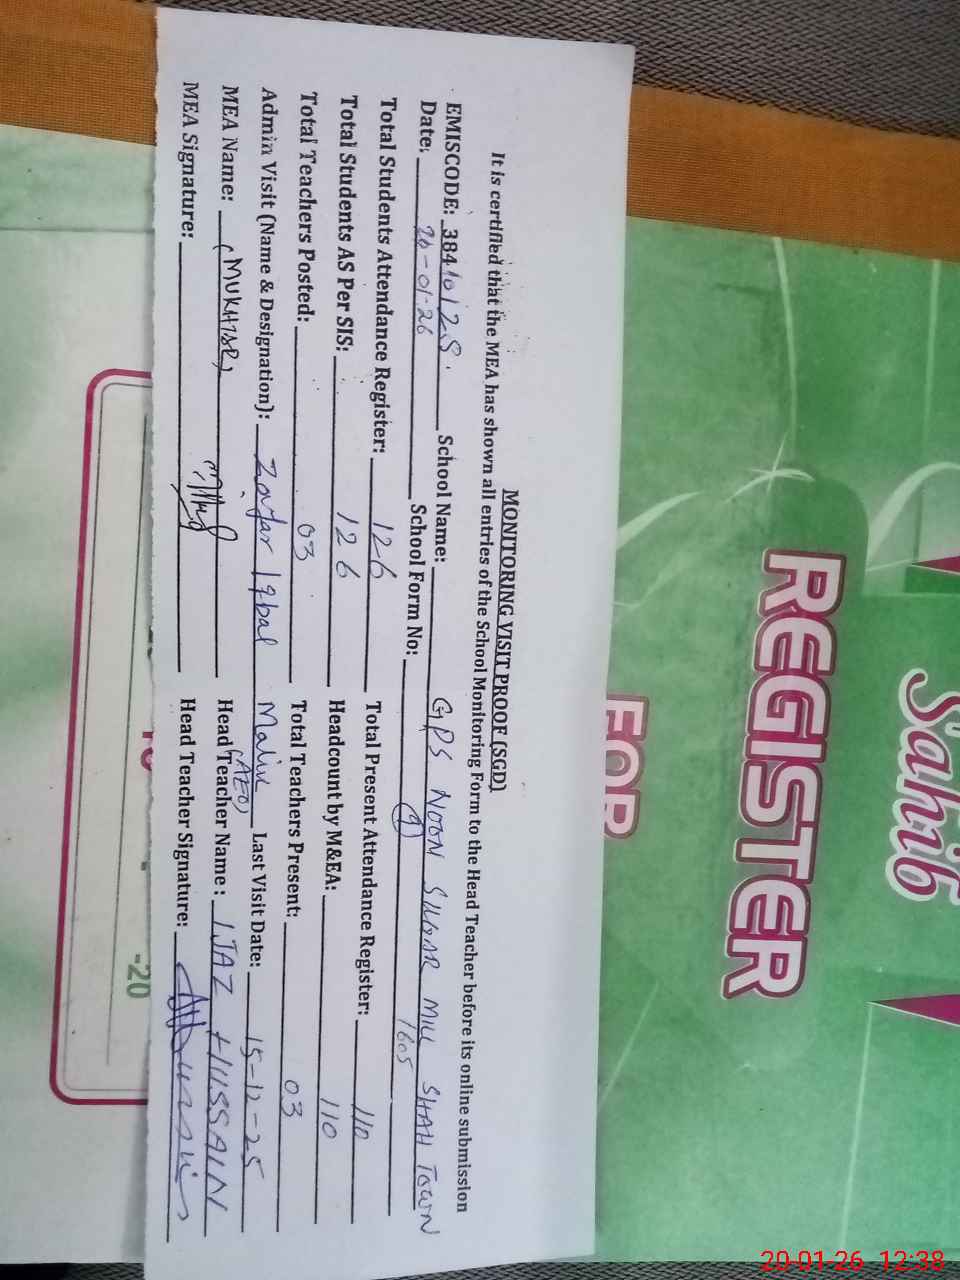 MONITORING VISIT PROOF (SGD)
It is certified that the MEA has shown all entries of the School Monitoring Form to the Head Teacher before its online submission
EMISCODE: 38410125. School Name: GPS NOON SUGAR MILL SHAH TOWN
Date: 20-01-26 School Form No: 9 1605
Total Students Attendance Register: 126 Total Present Attendance Register: 110
Total Students AS Per SIS: 126 Headcount by M&EA: 110
Total Teachers Posted: 03 Total Teachers Present: 03
Admin Visit (Name & Designation): Zafar Iqbal Malik (AEO) Last Visit Date: 15-12-25
MEA Name: (MUKHTAR) Head Teacher Name: IJAZ HUSSAIN
MEA Signature: Head Teacher Signature:
Sahib
REGISTER
FOR
-20
20-01-26 12:38